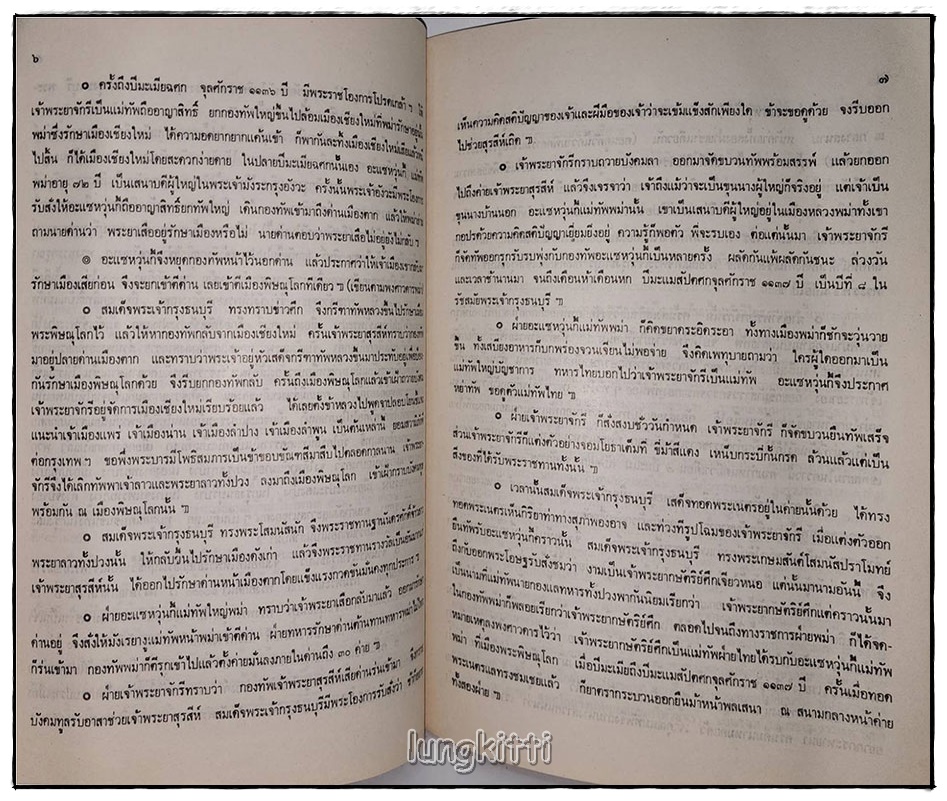 ๖
๏ ครั้งถึงปีมะเมียฉศก จุลศักราช ๑๑๓๖ ปี มีพระราชโองการโปรดเกล้า ฯ ให้
เจ้าพระยาจักรีเป็นแม่ทัพถืออาญาสิทธิ์ ยกกองทัพใหญ่ขึ้นไปล้อมเมืองเชียงใหม่ที่พม่ารักษาอยู่นั้น
พม่าซึ่งรักษาเมืองเชียงใหม่ ได้ความอดยากยากแค้นเข้า ก็พากันละทิ้งเมืองเชียงใหม่เสียแล้วหนี
ไปสิ้น ก็ได้เมืองเชียงใหม่โดยสะดวกง่ายดาย ในปลายปีมะเมียฉศกนั้นเอง อะแซหวุ่นกี้ แม่ทัพ
พม่าอายุ ๗๒ ปี เป็นเสนาบดีผู้ใหญ่ในพระเจ้ามังระกรุงอังวะ ครั้งนั้นพระเจ้าอังวะมีพระโองการ
รับสั่งให้อะแซหวุ่นกี้ถืออาญาสิทธิ์ยกทัพใหญ่ เดินกองทัพเข้ามาถึงด่านเมืองตาก แล้วให้พม่าล่าม
ถามนายด่านว่า พระยาเสืออยู่รักษาเมืองหรือไม่ นายด่านตอบว่าพระยาเสือไม่อยู่ยังไม่กลับ ฯ
๏ อะแซหวุ่นกี้ก็จึงหยุดกองทัพหน้าไว้นอกด่าน แล้วประกาศว่าให้เจ้าเมืองเขากลับมา
รักษาเมืองเสียก่อน จึงจะยกเข้าตีด่าน เลยเข้าตีเมืองพิษณุโลกทีเดียว ๚ (เขียนตามพงศาวดารพม่า)
๏ สมเด็จพระเจ้ากรุงธนบุรี ทรงทราบข่าวศึก จึงกรีฑาทัพหลวงขึ้นไปรักษาเมือง
พระพิษณุโลกไว้ แล้วให้หากองทัพกลับจากเมืองเชียงใหม่ ครั้นเจ้าพระยาสุรสีห์ทราบว่ากองทัพพม่า
มาอยู่ปลายด่านเมืองตาก และทราบว่าพระเจ้าอยู่หัวเสด็จกรีฑาทัพหลวงขึ้นมาประทับอยู่เพื่อป้อง
กันรักษาเมืองพิษณุโลกด้วย จึงรีบยกกองทัพกลับ ครั้นถึงเมืองพิษณุโลกแล้วเข้าเฝ้าถวายบังคม
เจ้าพระยาจักรีอยู่จัดการเมืองเชียงใหม่เรียบร้อยแล้ว ได้เลยตั้งข้าหลวงไปพูดจาปลอบโยนชี้แจง
แนะนำเจ้าเมืองแพร่ เจ้าเมืองน่าน เจ้าเมืองลำปาง เจ้าเมืองลำพูน เป็นต้นเหล่านี้ ยอมสวามิภักดิ์
ต่อกรุงเทพ ฯ ขอพึ่งพระบารมีโพธิสมภารเป็นข้าขอบขัณฑสีมาสืบไปตลอดกาลนาน เจ้าพระยา
จักรีจึงได้เลิกทัพพาเจ้าลาวและพระยาลาวทั้งปวง ลงมาถึงเมืองพิษณุโลก เข้าเฝ้ากราบบังคมทูล
พร้อมกัน ณ เมืองพิษณุโลกนั้น ๚
๏ สมเด็จพระเจ้ากรุงธนบุรี ทรงพระโสมนัสนัก จึงพระราชทานฐานันดรศักดิ์เจ้าลาว
พระยาลาวทั้งปวงนั้น ให้กลับขึ้นไปรักษาเมืองดังเก่า แล้วจึงพระราชทานรางวัลเป็นอันมาก
เจ้าพระยาสุรสีห์นั้น ได้ออกไปรักษาด่านหน้าเมืองตากโดยแข็งแรงกวดขันมั่นคงทุกประการ ฯ
๏ ฝ่ายอะแซหวุ่นกี้แม่ทัพใหญ่พม่า ทราบว่าเจ้าพระยาเสือกลับมาแล้ว ออกมารักษา
ด่านอยู่ จึงสั่งให้มังเรยางูแม่ทัพหน้าพม่าเข้าตีด่าน ฝ่ายทหารรักษาด่านต้านทานทหารพม่าไม่ไหว
ก็ร่นเข้ามา กองทัพพม่าก็ตีรุกเข้าไปแล้วตั้งค่ายมั่นลงภายในด่านถึง ๓๐ ค่าย ๚
๏ ฝ่ายเจ้าพระยาจักรีทราบว่า กองทัพเจ้าพระยาสุรสีห์เสียด่านร่นเข้ามา จึงกราบ
บังคมทูลรับอาสาช่วยเจ้าพระยาสุรสีห์ สมเด็จพระเจ้ากรุงธนบุรีมีพระโองการรับสั่งว่า ข้าก็อยาก
๗
เห็นความคิดสติปัญญาของเจ้าและฝีมือของเจ้าว่าจะเข้มแข็งสักเพียงใด ข้าจะขอดูด้วย จงรีบออก
ไปช่วยสุรสีห์เถิด ๚
๏ เจ้าพระยาจักรีกราบถวายบังคมลา ออกมาจัดขบวนทัพพร้อมสรรพ์ แล้วยกออก
ไปถึงค่ายเจ้าพระยาสุรสีห์ แล้วจึงเจรจาว่า เจ้าถึงแม้ว่าจะเป็นขุนนางผู้ใหญ่ก็จริงอยู่ แต่เจ้าเป็น
ขุนนางบ้านนอก อะแซหวุ่นกี้แม่ทัพพม่านั้น เขาเป็นเสนาบดีผู้ใหญ่อยู่ในเมืองหลวงพม่าทั้งเขา
กอปรด้วยความคิดสติปัญญาเยี่ยมยิ่งอยู่ ความรู้ก็พอตัว พี่จะรบเอง ต่อแต่นั้นมา เจ้าพระยาจักรี
ก็จัดทัพออกรุกรบรบพุ่งกับกองทัพอะแซหวุ่นกี้เป็นหลายครั้ง ผลัดกันแพ้ผลัดกันชนะ ล่วงวัน
และเวลาช้านานมา จนถึงเดือนห้าเดือนหก ปีมะแมสัปตศกจุลศักราช ๑๑๓๗ ปี เป็นปีที่ ๘ ใน
รัชสมัยพระเจ้ากรุงธนบุรี ๚
๏ ฝ่ายอะแซหวุ่นกี้แม่ทัพพม่า ก็คิดขยาดระอิดระอา ทั้งทางเมืองพม่าก็ชักจะวุ่นวาย
ขึ้น ทั้งเสบียงอาหารก็บกพร่องจวนเจียนไม่พอจ่าย จึงคิดเพทุบายถามว่า ใครผู้ใดออกมาเป็น
แม่ทัพใหญ่บัญชาการ ทหารไทยบอกไปว่าเจ้าพระยาจักรีเป็นแม่ทัพ อะแซหวุ่นกี้จึงประกาศ
หย่าทัพ ขอดูตัวแม่ทัพไทย ๚
๏ ฝ่ายเจ้าพระยาจักรี ก็สั่งสงบชั่ววันกำหนด เจ้าพระยาจักรี ก็จัดขบวนยืนทัพเสร็จ
ส่วนเจ้าพระยาจักรีก็แต่งตัวอย่างจอมโยธาเต็มที่ ขี่ม้าสีแดง เหน็บกระบี่กั้นกรด ล้วนแล้วแต่เป็น
สิ่งของที่ได้รับพระราชทานทั้งนั้น ๚
๏ เวลานั้นสมเด็จพระเจ้ากรุงธนบุรี เสด็จทอดพระเนตรอยู่ในค่ายนั้นด้วย ได้ทรง
ทอดพระเนตรเห็นกิริยาท่าทางสุภาพองอาจ และท่วงทีรูปโฉมของเจ้าพระยาจักรี เมื่อแต่งตัวออก
ยืนทัพรับอะแซหวุ่นกี้คราวนั้น สมเด็จพระเจ้ากรุงธนบุรี ทรงพระเกษมสันต์โสมนัสปราโมทย์
ถึงกับออกพระโอษฐรับสั่งชมว่า งามเป็นเจ้าพระยากษัตริย์ศึกเจียวหนอ แต่นั้นมานามอันนี้ จึง
เป็นนามที่แม่ทัพนายกองแลทหารทั้งปวงพากันนิยมเรียกว่า เจ้าพระยากษัตริย์ศึกแต่คราวนั้นมา
ในกองทัพพม่าก็พลอยเรียกว่าเจ้าพระยากษัตริย์ศึก ตลอดไปจนถึงทางราชการฝ่ายพม่า ก็ได้จด-
หมายเหตุลงพงศาวดารไว้ว่า เจ้าพระยากษัตริย์ศึกเป็นแม่ทัพฝ่ายไทยได้รบกับอะแซหวุ่นกี้แม่ทัพ
พม่า ที่เมืองพระพิษณุโลก เมื่อปีมะแมสัปตศกจุลศักราช ๑๑๓๗ ปี ครั้นเมื่อทอด
พระเนตรแลทรงชมเชยแล้ว ก็ยาตรากระบวนออกยืนม้าหน้าพลเสนา ณ สนามกลางหน้าค่าย
ทั้งสองฝ่าย ๚
lungkitti